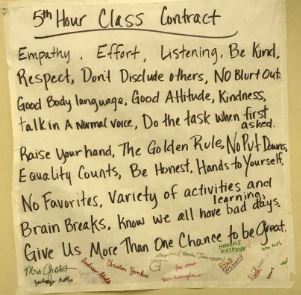 5th Hour Class Contract
Empathy, Effort, Listening, Be Kind,
Respect, Don't Disclude others, NO Blurt Outs
Good Body language, Good Attitude, Kindness,
talk in A Normal voice, Do the task when first
asked.
Raise Your hand, The Golden Rule, No Put Downs,
Equality Counts, Be Honest, Hands to Yourself,
No Favorites, Variety of activities and
learning,
Brain Breaks, Know we all have bad days,
Give Us More Than One Chance to be Great.